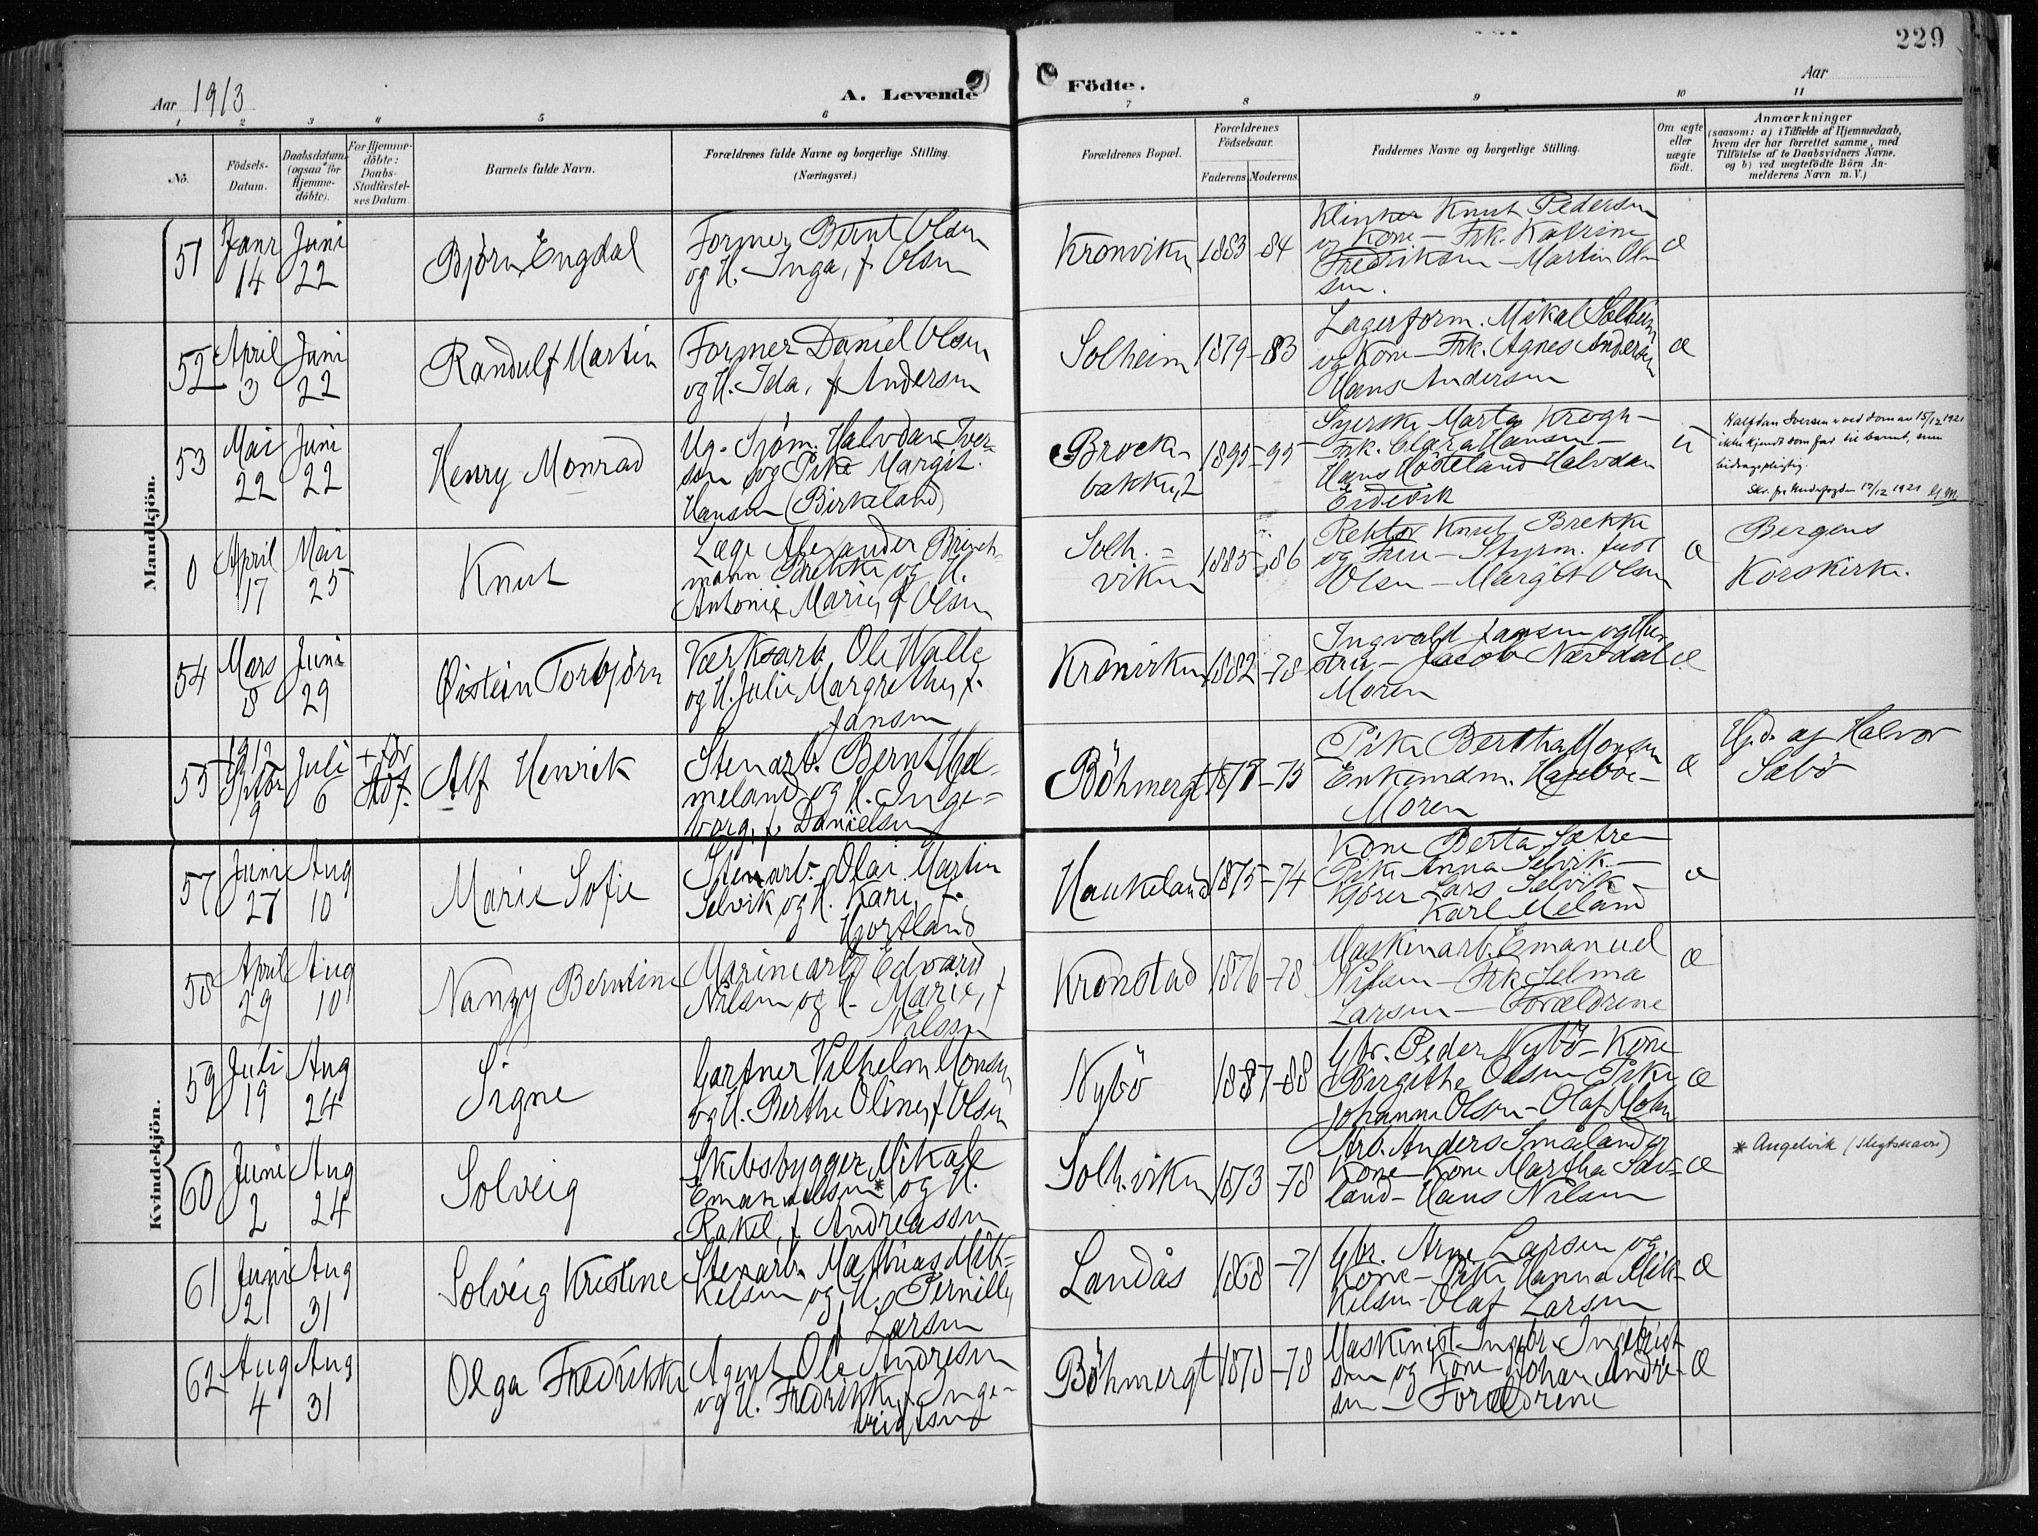 229
Aar 1913
A. Levende
Födte.
Aar
1 2 3 4 5 6 7 8 9 10 11
No.
Födsels-
Datum.
Daabsdatum
(ogsaa for
Hjemme-
döbte).
For Hjemme-
döbte:
Daabs-
Stadfæstel-
ses Datum.
Barnets fulde Navn.
Forældrenes fulde Navne og borgerlige Stilling.
(Næringsvei.)
Forældrenes Bopæl.
Forældrenes
Födselsaar.
Faderens. Moderens.
Faddernes Navne og borgerlige Stilling.
Om ægte
eller
uægte
födt.
Anmærkninger
(saasom: a) i Tilfælde af Hjemmedaab,
hvem der har forrettet samme, med
Tilföielse af to Daabsvidners Navne,
og b) ved uægtefödte Börn An-
melderens Navn m. V.)
Mandkjön.
51
Janr
14
Juni
22
Bjørn Engdal
Former Bernt Olsen
og H. Inga, f. Olsen
Kronviken
1883
-84
Klinker Knut Pedersen
og Kone - Frk. Katrine
Fredriksen - Martin Ol-
sen.
æ
52
April
3
Juni
22
Randulf Martin
Former Daniel Olsen
og H. Ida, f. Andersen
Solheim
1879
-83
Lagerform. Mikal Solheim
og Kone - Frk. Agnes Andersen
Hans Andersen
æ
53
Mai
22
Juni
22
Henry Monrad
Ug. Sjøm. Halvdan Iver-
sen og Pike Margit
Hansen (Birkeland)
bakken, 2
1895
-95
Syerske Marta Krogh -
Frk. Clara Hansen -
Hans Høsteland - Halvdan
u
Halfdan Iversen ved dom av 15/12 1921
ikke kjendt som far til barnet, men
bidragspligtig.
0
April
17
Mai
25
Knut
Læge Alexander Brinch-
mann Brekke og H.
Antonie Marie, f. Olsen
Solh.-
viken
1885
-86
Rektor Knut Brekke
og Frue - Styrm. Just
Olsen - Margit Olsen
æ
Bergens
Korskirke.
54
Mars
8
Juni
29
Øistein Torbjørn
Værksarb. Ole Walle
og H. Julie Margrethe, f.
Jansen
Kronviken
1882
-78
Ingvald Jansen og Hus-
tru - Jacob Nævdal
Moren
æ
55
1912
Sptbr
9
Juli
6
+ før
Stdf.
Alf Henrik
Stenarb. Bernt Hel-
meland og H. Inge-
borg, f. Danielsen
Böhmergt
-75
Pike Bertha Monsen
Enkemdm. Haseboe -
Moren
æ
Hjd. af Halvor
Sæbö
Kvindekjön.
57
Juni
27
Aug
10
Marie Sofie
Stenarb. Olai Martin
Selvik og H. Kari, f.
Hjortland
Haukeland
1875
-74
Kone Berta Sætre -
Pike Anna Selvik -
Kjörer Lars Selvik -
Karl Meland
æ
58
April
29
Aug
10
Nanzy Berntine
Marinearb. Edvard
Nilsen og H. Marie, f.
Nilsen
Kronstad
1876
-78
Maskinarb. Emanuel
Nilsen - Frk. Selma
Larsen - Forældrene
æ
59
Juli
19
Aug
24
Signe
Gartner Vilhelm Monsen
og H. Berthe Oline, f. Olsen
Nybö
1887
-88
Gbr. Peder Nybö - Kone
Birgithe Olsen Pike
Johanne Olsen - Olaf Molm
æ
60
Juni
2
Aug
24
Solveig
Skibsbygger Mikale
Emanuelsen* og H.
Rakel, f. Andreassen
Solh.viken
1873
-78
Arb. Anders Småland og
Kone - Kone Martha Sæv-
land - Hans Nilsen
æ
* Angelvik (slegtsnavn)
61
Juni
21
Aug
31
Solveig Kristine
Stenarb. Mathias Mik-
kelsen og H. Pernille,
f. Larsen
Landås
1868
-71
Gbr. Arne Larsen og
Kone - Pike Hanna Mik-
kelsen - Olaf Larsen
æ
62
Aug
4
Aug
31
Olga Fredrikke
Agent Ole Andresen
og H. Fredrikke, f. Inge-
brigtsen
Böhmergt
1878
-78
Maskinist Ingebr. Ingebrigt-
sen og Kone - Johan Andre-
sen - Forældrene
æ